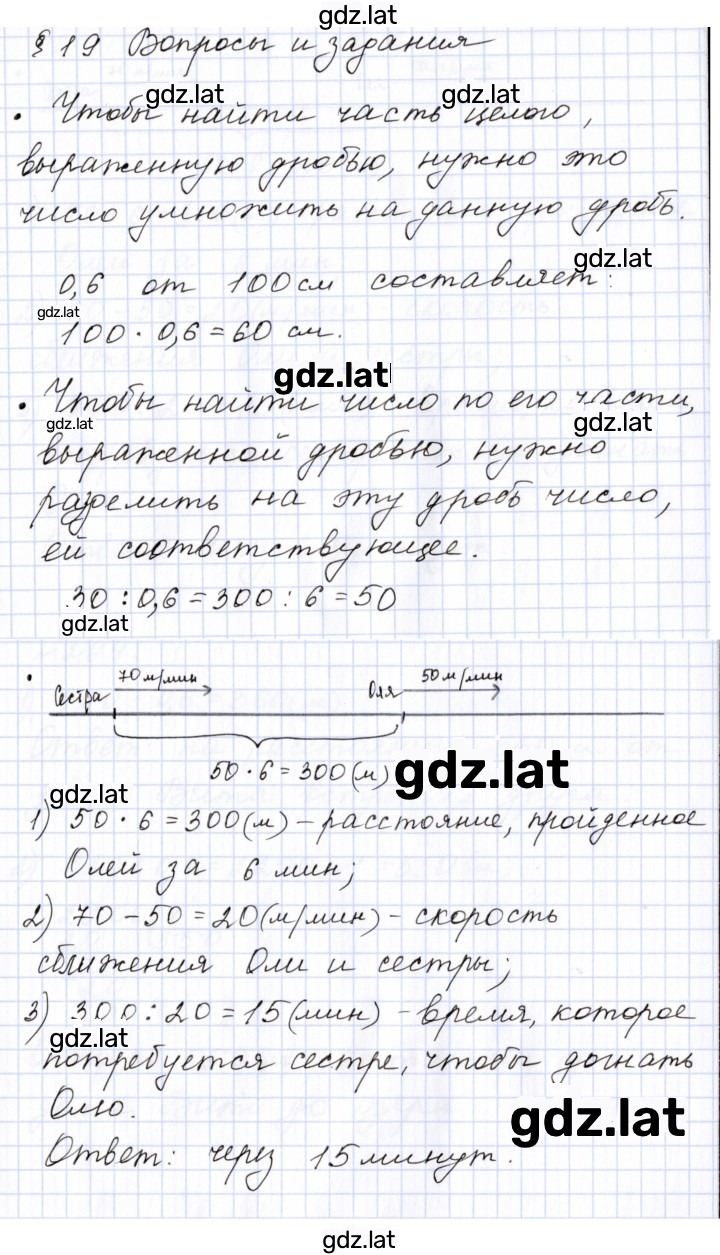 gdz.lat
§ 19 Вопросы и задания
gdz.lat gdz.lat
• Чтобы найти часть целого,
выраженную дробью, нужно это
число умножить на данную дробь.
gdz.lat
0,6 от 100 см составляет:
gdz.lat
100 · 0,6 = 60 см.
gdz.lat
• Чтобы найти число по его части,
gdz.lat gdz.lat
выраженной дробью, нужно
разделить на эту дробь число,
ей соответствующее.
30 : 0,6 = 300 : 6 = 50
gdz.lat
• 70 м/мин 50 м/мин
Сестра Оля
50 · 6 = 300 (м)
gdz.lat
gdz.lat
1) 50 · 6 = 300 (м) – расстояние, пройденное
Олей за 6 мин;
2) 70 – 50 = 20 (м/мин) – скорость
сближения Оли и сестры;
3) 300 : 20 = 15 (мин) – время, которое
gdz.lat
потребуется сестре, чтобы догнать
Олю.
gdz.lat
Ответ: через 15 минут.
gdz.lat